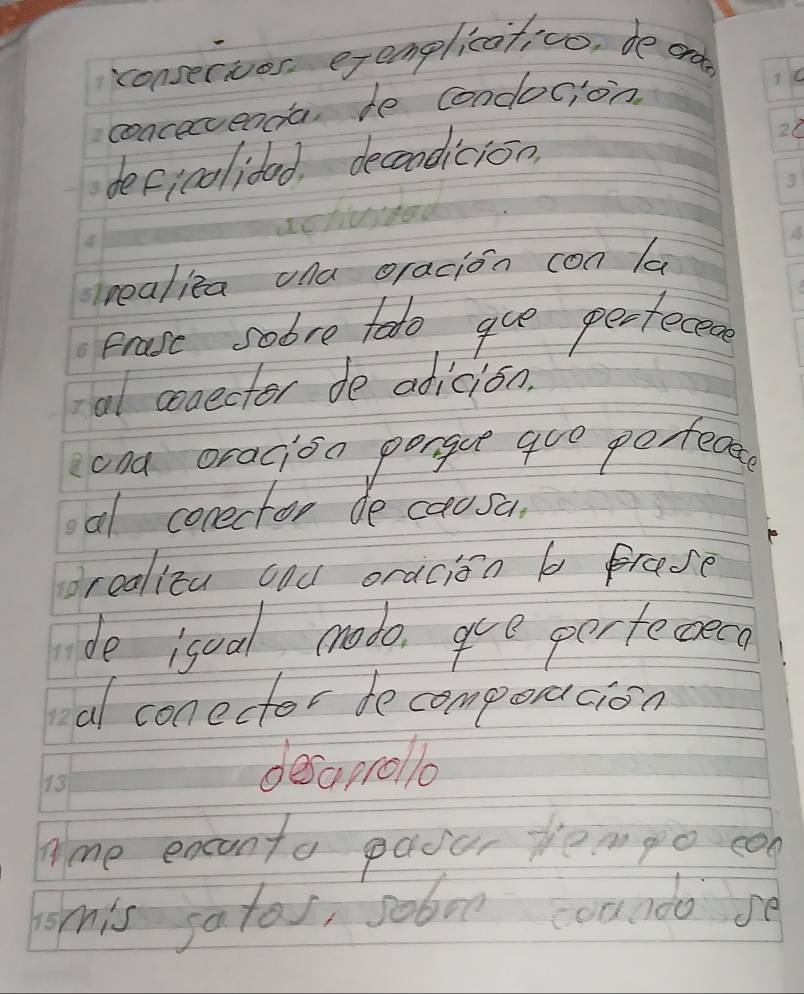 consecivos. ejemplicativo. de orde
concecuencia. de conducion.
deficalidad. decondición.
actividad
1 realiza una oración con la
Frase sobre todo que pertecece
al conector de adición.
2 una oración porque que pertecece
al conector de causa.
3 realiza una oración la frase
de igual modo. que pertececa
al conector de comporacion
desarrollo
1 me encanta pasar tiempo con
mis gatos, sobre cuando se